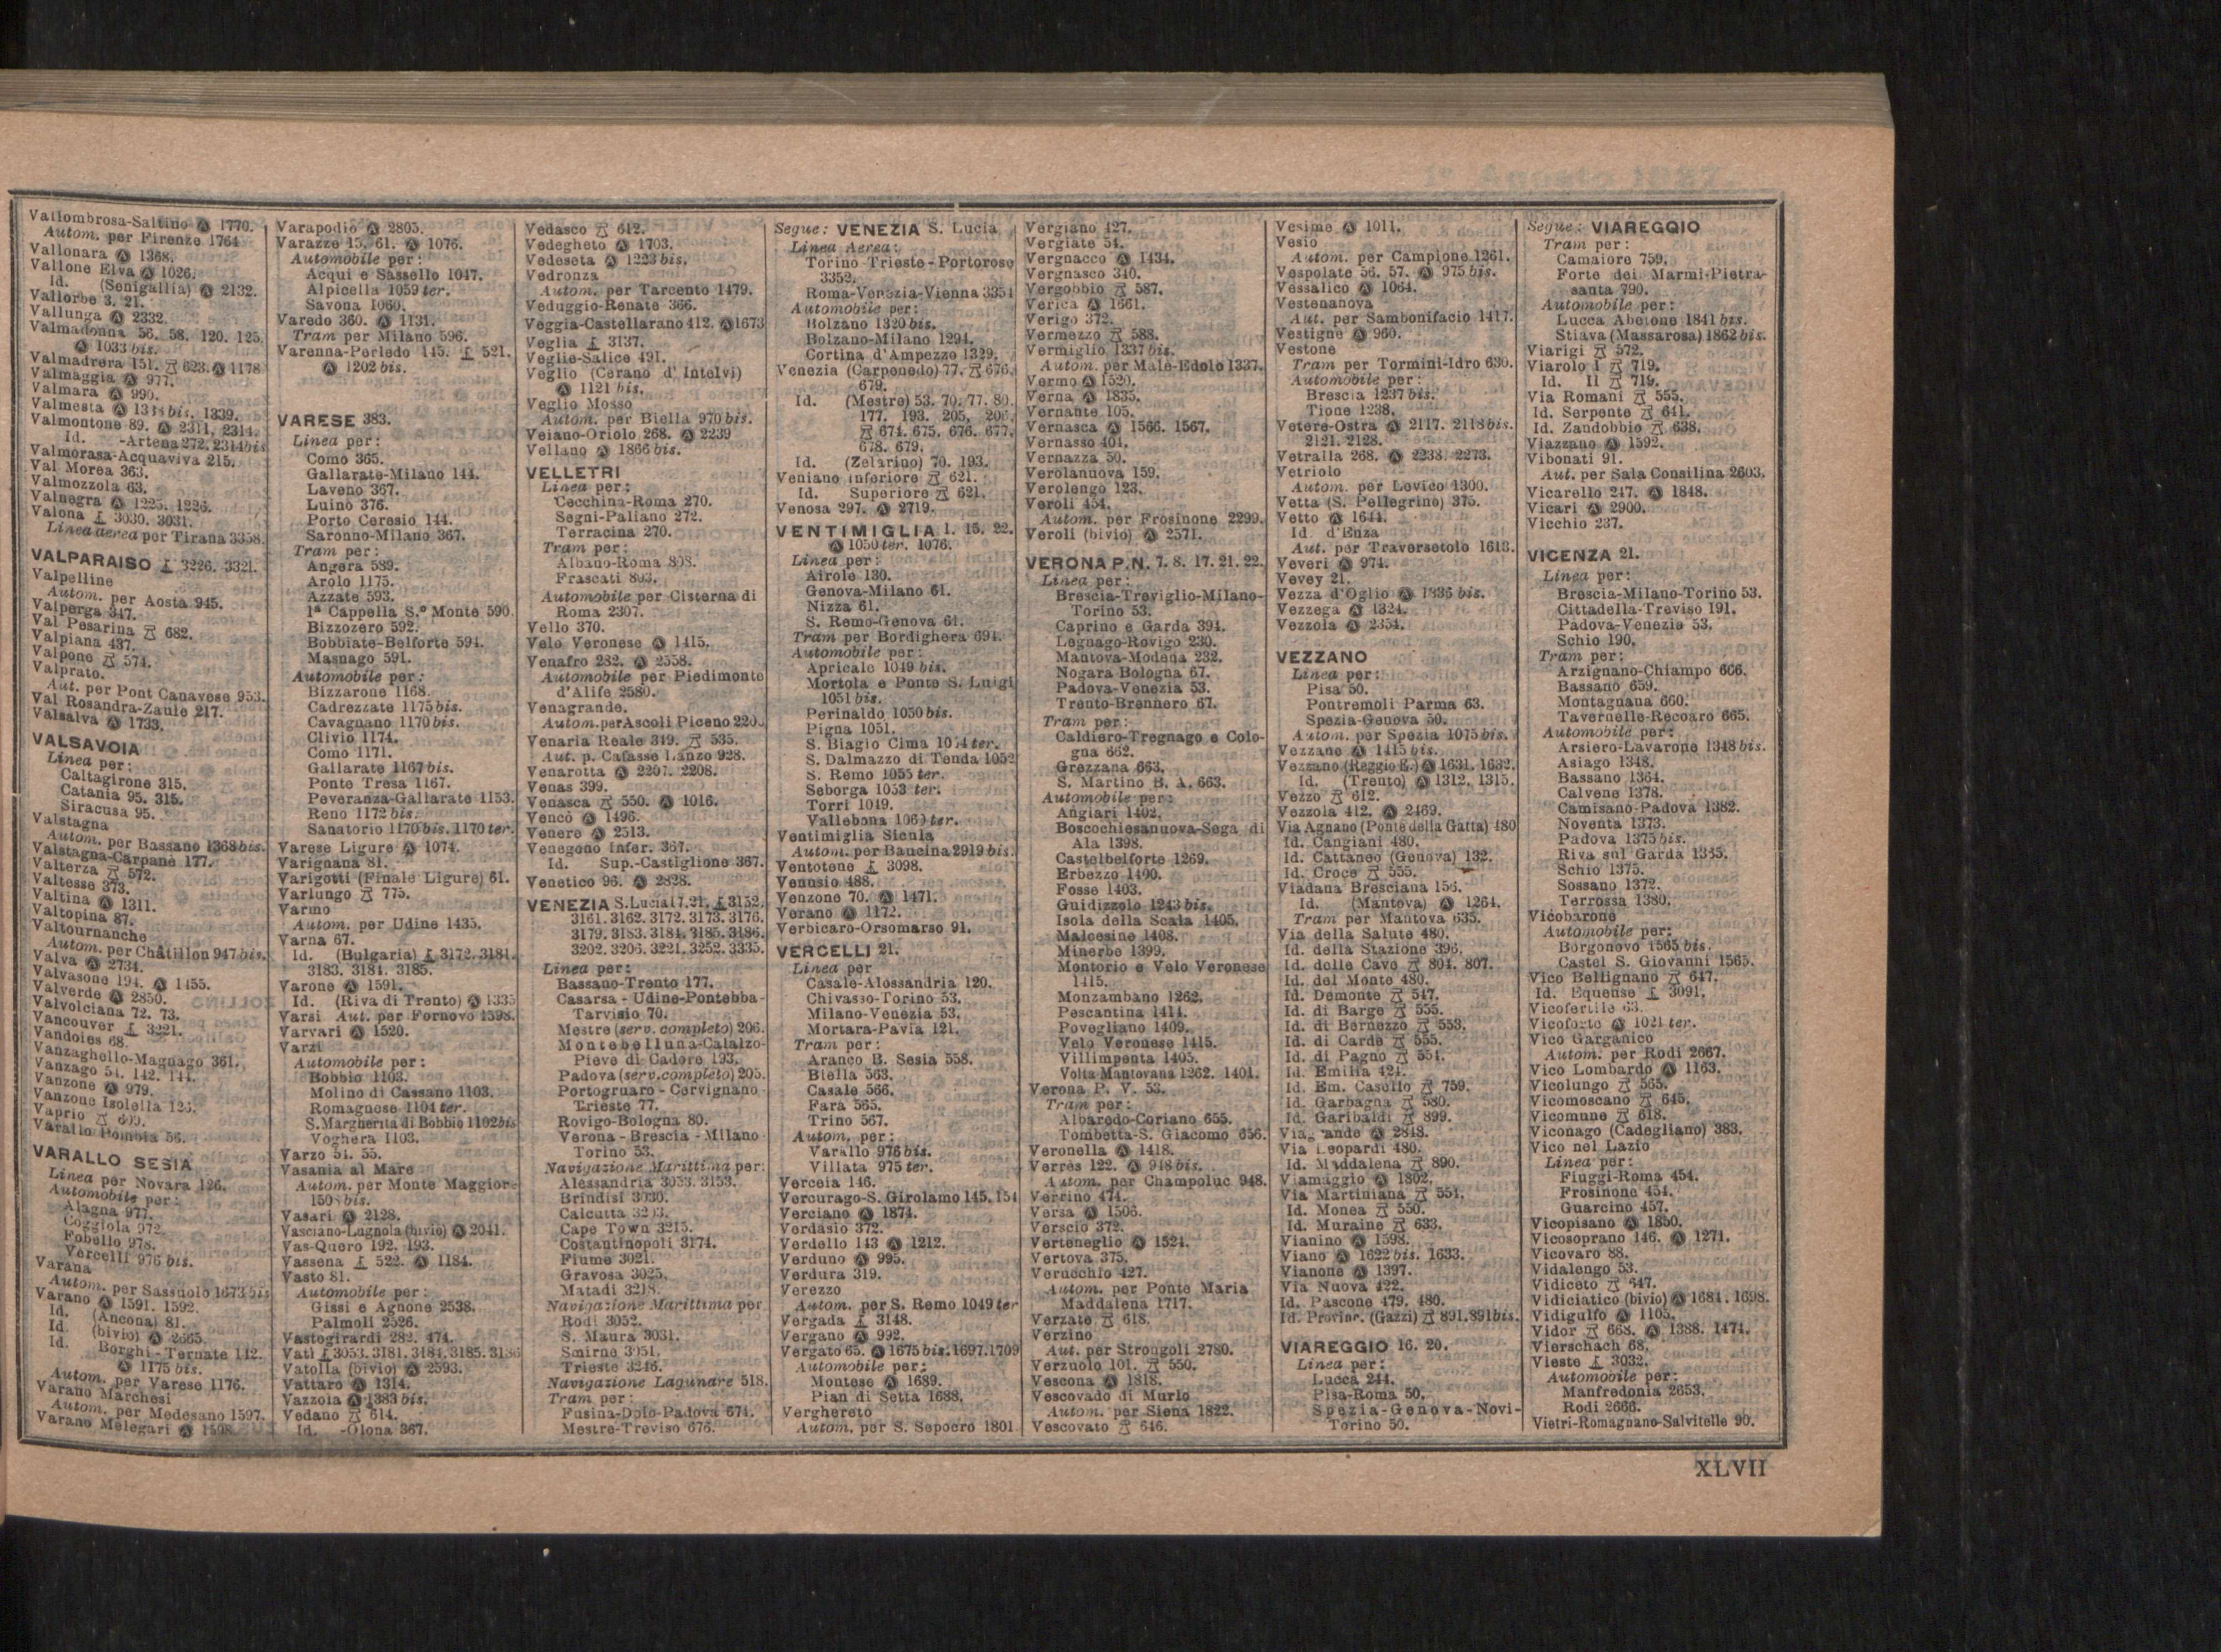 Vallombrosa-Saltino Ⓐ 1770.
Autom. per Firenze 1764
Vallonara Ⓐ 1368.
Vallone Elva Ⓐ 1026.
Id. (Senigallia) Ⓐ 2132.
Vallorbe 3. 21.
Vallunga Ⓐ 2332.
Valmadonna 56. 58. 120. 125.
Ⓐ 1033 bis.
Valmadrera 151. 623. Ⓐ 1178
Valmaggia Ⓐ 977.
Valmara Ⓐ 990.
Valmesta Ⓐ bis. 1339.
Valmontone 89. Ⓐ 2311, 2314.
Id. -Artena 272. 2314 bis
Valmorasa-Acquaviva 215.
Val Morea 363.
Valmozzola 63.
Valnegra Ⓐ 1225. 1226.
Valona 3030. 3031.
Linea aerea per Tirana 3358.
VALPARAISO 3226. 3321.
Valpelline
Autom. per Aosta 945.
Valperga 347.
Val Pesarina 682.
Valpiana 437.
Valpone 574.
Valprato.
Aut. per Pont Canavese 953.
Val Rosandra-Zaule 217.
Valsalva Ⓐ 1733.
VALSAVOIA
Linea per:
Caltagirone 315.
Catania 95. 315.
Siracusa 95.
Valstagna
Autom. per Bassano 1368 bis.
Valstagna-Carpanè 177.
Valterza 572.
Valtesse 373.
Valtina Ⓐ 1311.
Valtopina 87.
Valtournanche
Autom. per Châtillon 947 bis.
Valva Ⓐ 2734.
Valvasone 194. Ⓐ 1455.
Valverde Ⓐ 2850.
Valvolciana 72. 73.
Vancouver 3221.
Vandoies 68.
Vanzaghello-Magnago 361.
Vanzago 54. 142. 144.
Vanzone Ⓐ 979.
Vanzone Isolella 126.
Vaprio 600.
Varallo Pombia 56.
VARALLO SESIA
Linea per Novara 126.
Automobile per:
Alagna 977.
Coggiola 972.
Fobello 978.
Vercelli 976 bis.
Varana
Autom. per Sassuolo 1673 bis
Varano Ⓐ 1591. 1592.
Id. (Ancona) 81.
Id. (bivio) Ⓐ 2665.
Id. Borghi-Ternate 142.
Ⓐ 1175 bis.
Autom. per Varese 1176.
Varano Marchesi
Autom. per Medesano 1597.
Varano Melegari Ⓐ 1598.
Varapodio Ⓐ 2805.
Varazze 15. 61. Ⓐ 1076.
Automobile per:
Acqui e Sassello 1047.
Alpicella 1059 ter.
Savona 1060.
Varedo 360. Ⓐ 1131.
Tram per Milano 596.
Varenna-Perledo 145. 521.
Ⓐ 1202 bis.
VARESE 383.
Linea per:
Como 365.
Gallarate-Milano 144.
Laveno 367.
Luino 376.
Porto Ceresio 144.
Saronno-Milano 367.
Tram per:
Angera 589.
Arolo 1175.
Azzate 593.
1ª Cappella S.º Monte 590.
Bizzozero 592.
Bobbiate-Belforte 594.
Masnago 591.
Automobile per:
Bizzarone 1168.
Cadrezzate 1175 bis.
Cavagnano 1170 bis.
Clivio 1174.
Como 1171.
Gallarate 1167 bis.
Ponte Tresa 1167.
Peveranza-Gallarate 1153.
Reno 1172 bis.
Sanatorio 1170 bis. 1170 ter.
Varese Ligure Ⓐ 1074.
Varignana 81.
Varigotti (Finale Ligure) 61.
Varlungo 775.
Varmo
Autom. per Udine 1435.
Varna 67.
Id. (Bulgaria) 3172. 3181.
3183. 3184. 3185.
Varone Ⓐ 1591.
Id. (Riva di Trento) Ⓐ 1335
Varsi Aut. per Fornovo 1598.
Varvari Ⓐ 1520.
Varzi
Automobile per:
Bobbio 1103.
Molino di Cassano 1103.
Romagnese 1104 ter.
S. Margherita di Bobbio 1102 bis
Voghera 1103.
Varzo 51. 55.
Vasania al Mare
Autom. per Monte Maggiore
bis.
Vasari Ⓐ 2128.
Vasciano-Lugnola (bivio) Ⓐ 2041.
Vas-Quero 192. 193.
Vassena 522. Ⓐ 1184.
Vasto 81.
Automobile per:
Gissi e Agnone 2538.
Palmoli 2526.
Vastogirardi 282. 474.
Vati 3053. 3181. 3184. 3185. 3186
Vatolla (bivio) Ⓐ 2593.
Vattaro Ⓐ 1314.
Vazzola Ⓐ 1383 bis.
Vedano 614.
Id. -Olona 367.
Vedasco 612.
Vedegheto Ⓐ 1703.
Vedeseta Ⓐ 1223 bis.
Vedronza
Autom. per Tarcento 1479.
Veduggio-Renate 366.
Veggia-Castellarano 412. Ⓐ 1673
Veglia 3137.
Veglie-Salice 491.
Veglio (Cerano d' Intelvi)
Ⓐ 1121 bis.
Veglio Mosso
Autom. per Biella 970 bis.
Veiano-Oriolo 268. Ⓐ 2239
Vellano Ⓐ 1866 bis.
VELLETRI
Linea per:
Cecchina-Roma 270.
Segni-Paliano 272.
Terracina 270.
Tram per:
Albano-Roma 808.
Frascati 803.
Automobile per Cisterna di
Roma 2307.
Vello 370.
Velo Veronese Ⓐ 1415.
Venafro 282. Ⓐ 2558.
Automobile per Piedimonte
d'Alife 2580.
Venagrande.
Autom. per Ascoli Piceno
Venaria Reale 349. 535.
Aut. p. Cafasse Lanzo 928.
Venarotta Ⓐ 2207. 2208.
Venas 399.
Venasca 550. Ⓐ 1016.
Vencò Ⓐ 1496.
Venere Ⓐ 2513.
Venegono Infer. 367.
Id. Sup.-Castiglione 367.
Venetico 96. Ⓐ 2828.
VENEZIA S. Lucia 17. 21. 3152.
3161. 3162. 3172. 3173. 3176.
3179. 3183. 3184. 3185. 3186.
3202. 3206. 3221. 3252. 3335.
Linea per:
Bassano-Trento 177.
Casarsa - Udine-Pontebba-
Tarvisio 70.
Mestre (serv. completo) 206.
Montebelluna-Calalzo-
Pieve di Cadore 193.
Padova (serv. completo) 205.
Portogruaro - Cervignano
Trieste 77.
Rovigo-Bologna 80.
Verona - Brescia - Milano
Torino 53.
Navigazione Marittima per:
Alessandria 3053. 3153.
Brindisi 3030.
Calcutta
Cape Town 3215.
Costantinopoli 3174.
Fiume 3021.
Gravosa 3025.
Matadi 3218.
Navigazione Marittima per
Rodi 3052.
S. Maura 3031.
Smirne 3051.
Trieste 3246.
Navigazione Lagunare 518.
Tram per:
Fusina-Dolo-Padova 674.
Mestre-Treviso 676.
Segue: VENEZIA S. Lucia
Linea Aerea:
Torino-Trieste-Portorose
3352.
Roma-Venezia-Vienna 3354
Automobile per:
Bolzano 1320 bis.
Bolzano-Milano 1294.
Cortina d'Ampezzo 1329.
Venezia (Carpenedo) 77. 676.
679.
Id. (Mestre) 53. 70. 77. 80.
177. 193. 205. 206.
674. 675. 676. 677.
678. 679.
Id. (Zelarino) 70. 193.
Veniano Inferiore 621.
Id. Superiore 621.
Venosa 297. Ⓐ 2719.
VENTIMIGLIA 1. 15. 22.
Ⓐ 1050 ter. 1076.
Linea per:
Airole 130.
Genova-Milano 61.
Nizza 61.
S. Remo-Genova 61.
Tram per Bordighera 694.
Automobile per:
Apricale 1049 bis.
Mortola e Ponte S. Luigi
1051 bis.
Perinaldo 1050 bis.
Pigna 1051.
S. Biagio Cima ter.
S. Dalmazzo di Tenda 1052
S. Remo 1055 ter.
Seborga 1053 ter.
Torri 1049.
Vallebona ter.
Ventimiglia Sicula
Autom. per Baucina 2919 bis.
Ventotene 3098.
Venusio 488.
Venzone 70. Ⓐ 1471.
Verano Ⓐ 1172.
Verbicaro-Orsomarso 91.
VERCELLI 21.
Linea per
Casale-Alessandria 120.
Chivasso-Torino 53.
Milano-Venezia 53.
Mortara-Pavia 121.
Tram per:
Aranco B. Sesia 558.
Biella 563.
Casale 566.
Fara 565.
Trino 567.
Autom. per:
Varallo 976 bis.
Villata 975 ter.
Verceia 146.
Vercurago-S. Girolamo 145. 154
Verciano Ⓐ 1874.
Verdasio 372.
Verdello 143 Ⓐ 1212.
Verduno Ⓐ 995.
Verdura 319.
Verezzo
Autom. per S. Remo 1049 ter
Vergada 3148.
Vergano Ⓐ 992.
Vergato 65. Ⓐ 1675 bis. 1697. 1709
Automobile per:
Montese Ⓐ 1689.
Pian di Setta 1688.
Verghereto
Autom. per S. Sepocro 1801.
Vergiano 427.
Vergiate 54.
Vergnacco Ⓐ 1434.
Vergnasco 340.
Vergobbio 587.
Verica Ⓐ 1661.
Verigo 372.
Vermezzo 588.
Vermiglio 1337 bis.
Autom. per Malè-Edolo 1337.
Vermo Ⓐ 1520.
Verna Ⓐ 1835.
Vernante 105.
Vernasca Ⓐ 1566. 1567.
Vernasso 401.
Vernazza 50.
Verolanuova 159.
Verolengo 123.
Veroli 454.
Autom. per Frosinone 2299.
Veroli (bivio) Ⓐ 2571.
VERONA P.N. 7. 8. 17. 21. 22.
Linea per:
Brescia-Treviglio-Milano-
Torino 53.
Caprino e Garda 394.
Legnago-Rovigo 230.
Mantova-Modena 232.
Nogara Bologna 67.
Padova-Venezia 53.
Trento-Brennero 67.
Tram per:
Caldiero-Tregnago e Colo-
gna 662.
Grezzana 663.
S. Martino B. A. 663.
Automobile per:
Angiari 1402.
Boscochiesanuova-Sega di
Ala 1398.
Castelbelforte 1269.
Erbezzo 1400.
Fosse 1403.
Guidizzolo 1243 bis.
Isola della Scala 1405.
Malcesine 1408.
Minerbe 1399.
Montorio e Velo Veronese
1415.
Monzambano 1262.
Pescantina 1414.
Povegliano 1409.
Velo Veronese 1415.
Villimpenta 1405.
Volta Mantovana 1262. 1401.
Verona P. V. 53.
Tram per:
Albaredo-Coriano 655.
Tombetta-S. Giacomo 656.
Veronella Ⓐ 1418.
Verrès 122. Ⓐ 948 bis.
Autom. per Champoluc 948.
Verrino 474.
Versa Ⓐ 1506.
Verscio 372.
Verteneglio Ⓐ 1524.
Vertova 375.
Verucchio 427.
Autom. per Ponte Maria
Maddalena 1717.
Verzate 618.
Verzino
Aut. per Strongoli 2780.
Verzuolo 101. 550.
Vescona Ⓐ 1818.
Vescovado di Murlo
Autom. per Siena 1822.
Vescovato 646.
Vesime Ⓐ 1011.
Vesio
Autom. per Campione 1261.
Vespolate 56. 57. Ⓐ 975 bis.
Vessalico Ⓐ 1064.
Vestenanova
Aut. per Sambonifacio 1417.
Vestigne Ⓐ 960.
Vestone
Tram per Tormini-Idro 630.
Automobile per:
Brescia 1237 bis.
Tione 1238.
Vetere-Ostra Ⓐ 2117. 2118 bis.
2121. 2128.
Vetralla 268. Ⓐ 2238. 2273.
Vetriolo
Autom. per Levico 1300.
Vetta (S. Pellegrino) 375.
Vetto Ⓐ 1644.
Id. d'Enza
Aut. per Traversetolo 1613.
Veveri Ⓐ 974.
Vevey 21.
Vezza d'Oglio Ⓐ 1336 bis.
Vezzega Ⓐ 1324.
Vezzola Ⓐ 2354.
VEZZANO
Linea per:
Pisa 50.
Pontremoli Parma 63.
Spezia-Genova 50.
Autom. per Spezia 1075 bis.
Vezzane Ⓐ 1415 bis.
Vezzano (Reggio E.) Ⓐ 1631. 1632.
Id. (Trento) Ⓐ 1312. 1315.
Vezzo 612.
Vezzola 412. Ⓐ 2469.
Via Agnano (Ponte della Gatta) 480
Id. Cangiani 480.
Id. Cattaneo (Genova) 132.
Id. Croce 555.
Viadana Bresciana 156.
Id. (Mantova) Ⓐ 1264.
Tram per Mantova 635.
Via della Salute 480.
Id. della Stazione 396.
Id. delle Cave 804. 807.
Id. del Monte 480.
Id. Demonte 547.
Id. di Barge 555.
Id. di Bernezzo 553.
Id. di Cardè 555.
Id. di Pagno 551.
Id. Emilia 424.
Id. Em. Casello 759.
Id. Garbagna 580.
Id. Garibaldi 899.
Viagrande Ⓐ 2848.
Via Leopardi 480.
Id. Maddalena 890.
Viamaggio Ⓐ 1802.
Via Martiniana 551.
Id. Monea 550.
Id. Muraine 633.
Vianino Ⓐ 1598.
Viano Ⓐ 1622 bis. 1633.
Vianone Ⓐ 1397.
Via Nuova 422.
Id. Pascone 479. 480.
Id. Provinc. (Gazzi) 891. 891 bis.
VIAREGGIO 16. 20.
Linea per:
Lucca 244.
Pisa-Roma 50.
Spezia-Genova-Novi-
Torino 50.
Segue: VIAREGGIO
Tram per:
Camaiore 759.
Forte dei Marmi-Pietra-
santa 790.
Automobile per:
Lucca Abetone 1841 bis.
Stiava (Massarosa) 1862 bis.
Viarigi 572.
Viarolo I 719.
Id. II 719.
Via Romani 555.
Id. Serpente 641.
Id. Zandobbio 638.
Viazzano Ⓐ 1592.
Vibonati 91.
Aut. per Sala Consilina 2603.
Vicarello 247. Ⓐ 1848.
Vicari Ⓐ 2900.
Vicchio 237.
VICENZA 21.
Linea per:
Brescia-Milano-Torino 53.
Cittadella-Treviso 191.
Padova-Venezia 53.
Schio 190.
Tram per:
Arzignano-Chiampo 666.
Bassano 659.
Montagnana 660.
Tavernelle-Recoaro 665.
Automobile per:
Arsiero-Lavarone 1348 bis.
Asiago 1348.
Bassano 1364.
Calvene 1378.
Camisano-Padova 1382.
Noventa 1373.
Padova 1375 bis.
Riva sul Garda 1335.
Schio 1375.
Sossano 1372.
Terrossa 1380.
Vicobarone
Automobile per:
Borgonovo 1565 bis.
Castel S. Giovanni 1565.
Vico Bellignano 647.
Id. Equense 3091.
Vicofertile 63.
Vicoforte Ⓐ 1021 ter.
Vico Garganico
Autom. per Rodi 2667.
Vico Lombardo Ⓐ 1163.
Vicolungo 565.
Vicomoscano 645.
Vicomune 618.
Viconago (Cadegliano) 383.
Vico nel Lazio
Linea per:
Fiuggi-Roma 454.
Frosinone 454.
Guarcino 457.
Vicopisano Ⓐ 1850.
Vicosoprano 146. Ⓐ 1271.
Vicovaro 88.
Vidalengo 53.
Vidiceto 647.
Vidiciatico (bivio) Ⓐ 1684. 1698.
Vidigulfo Ⓐ 1105.
Vidor 668. Ⓐ 1388. 1474.
Vierschach 68.
Vieste 3032.
Automobile per:
Manfredonia 2653.
Rodi 2666.
Vietri-Romagnano-Salvitelle 90.
XLVII